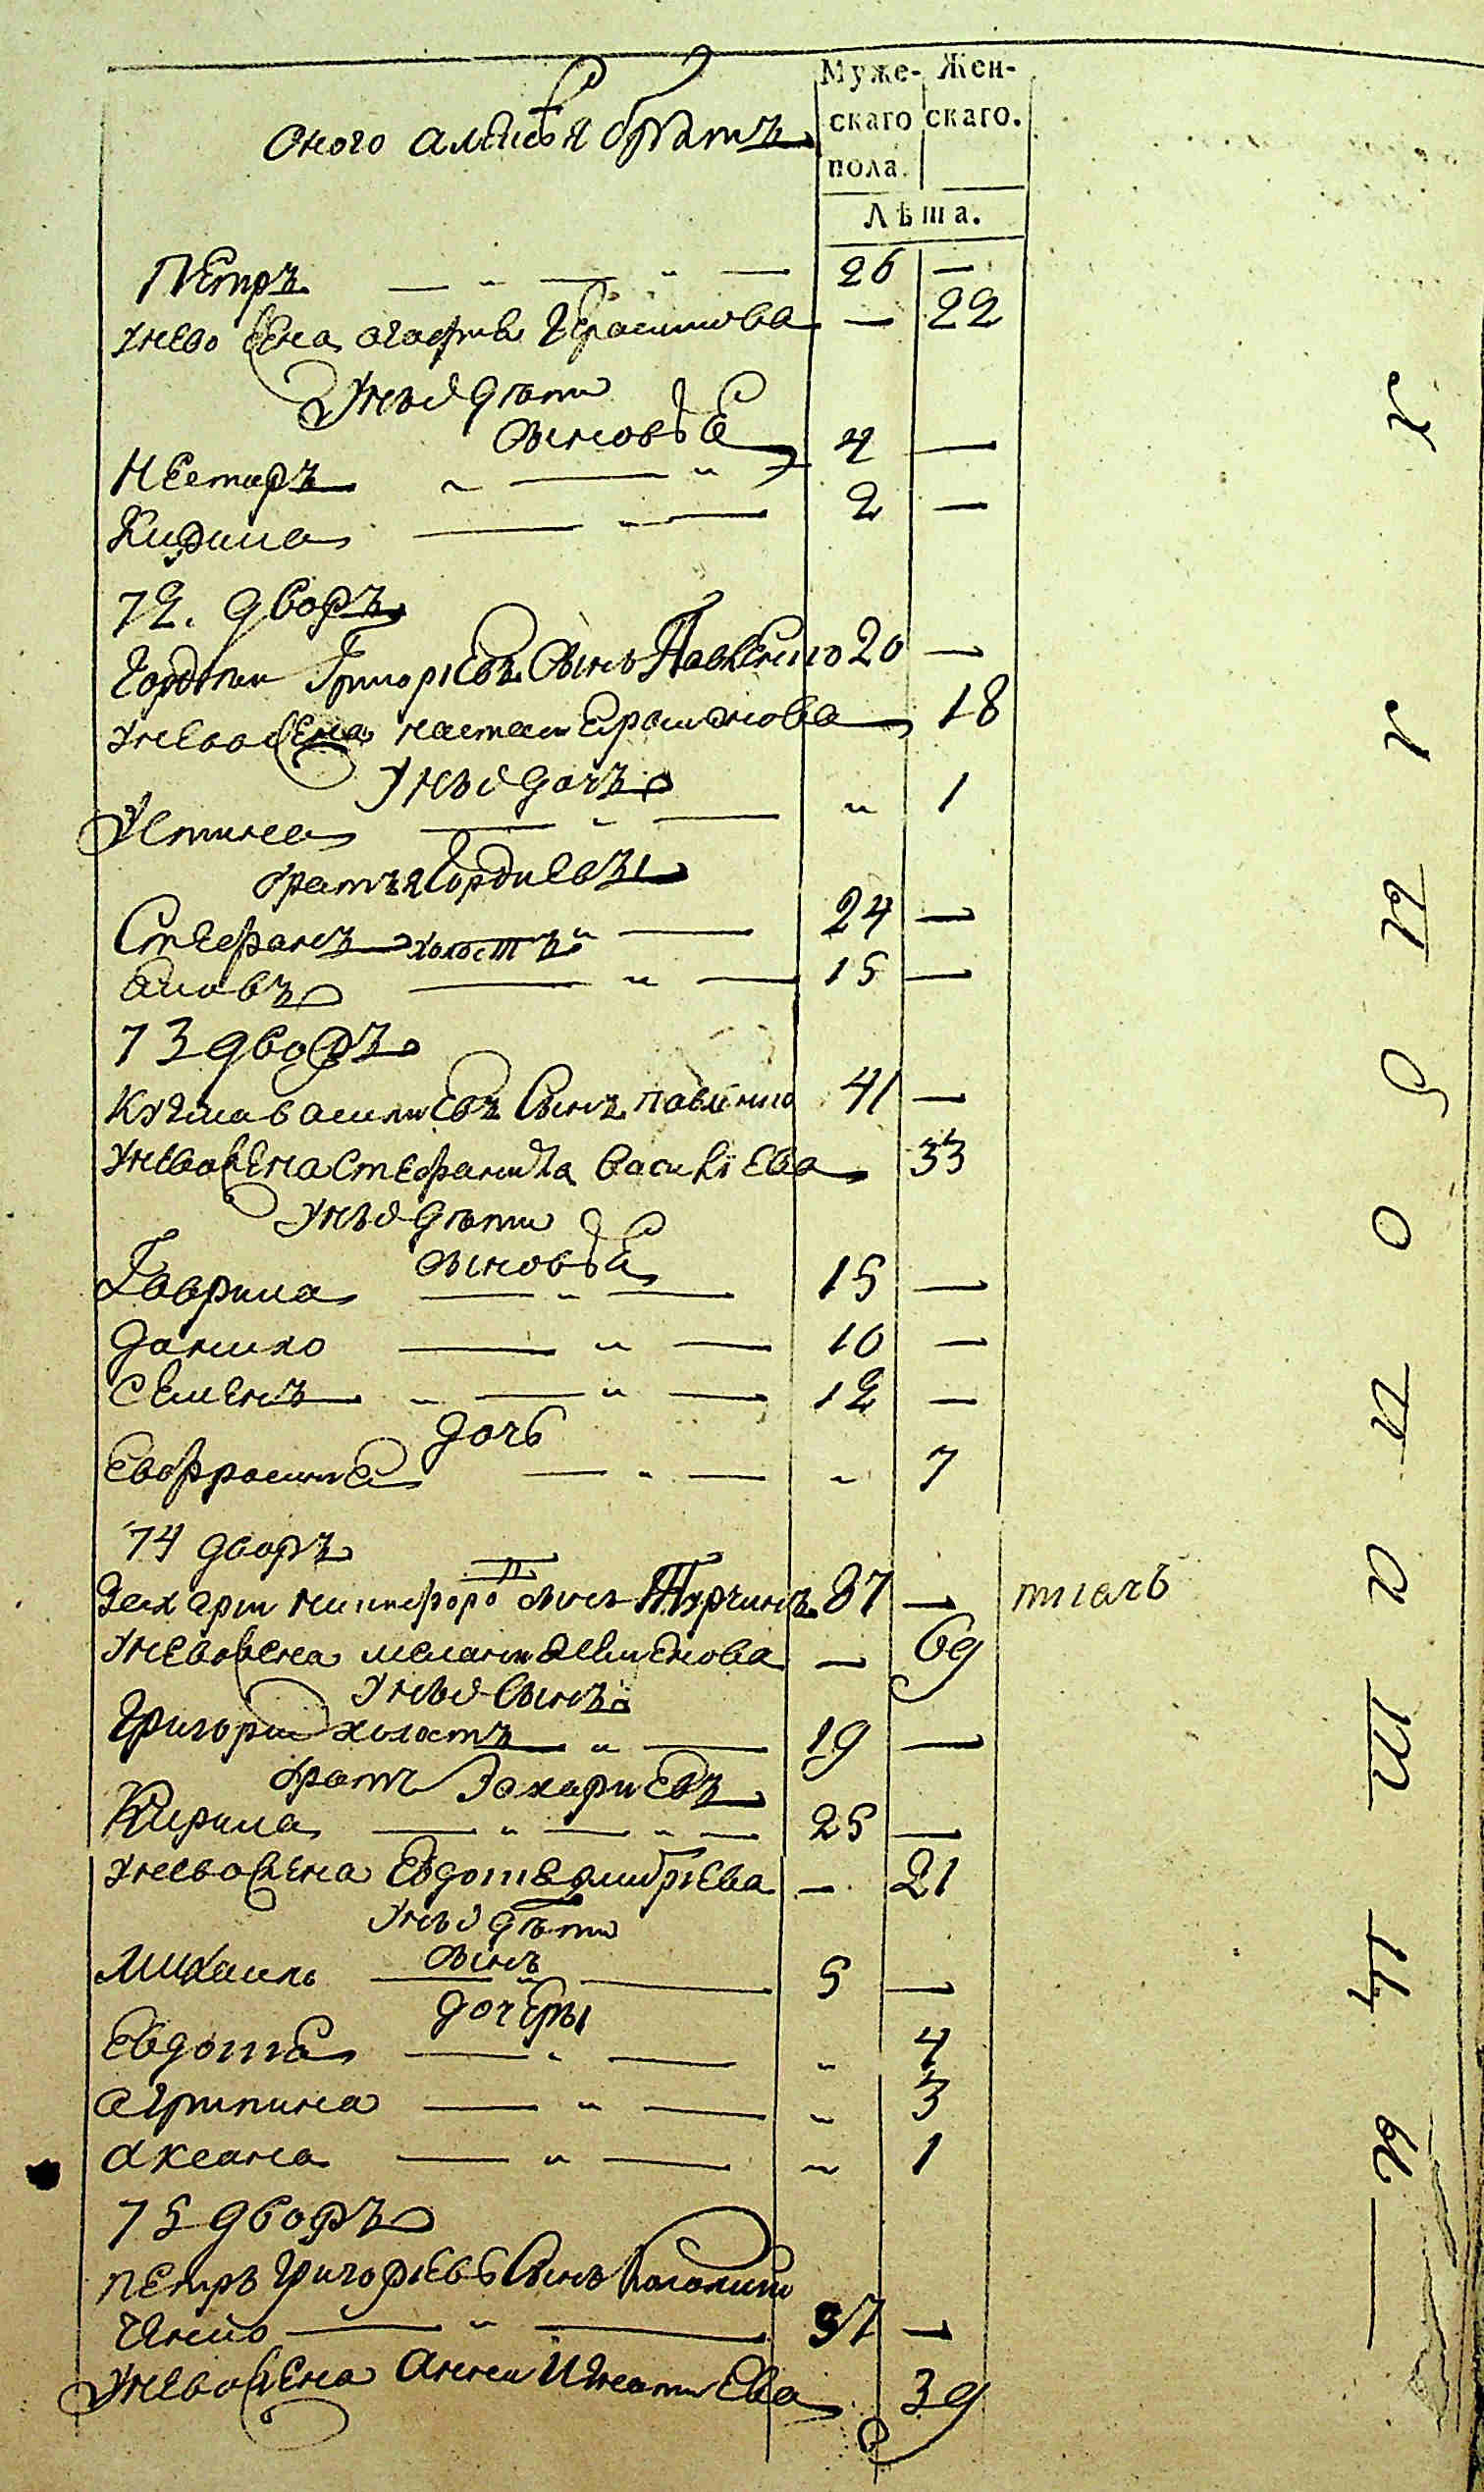 Муже- Жен-
скаго скаго.
пола.
Лѣта.
оного алеѯѣя братъ
Петръ 26 —
унево жена агафия Герасимова — 22
унихъ дѣти
сыновѣя
Нестаръ 4 —
Кирила 2 —
72. дворъ
Гордѣи Григориевъ сынъ Павленко 20 —
унево жена настасия 18
унихъ дочъ
Устинея 1
братъя Гордиевы
Стефанъ холостъ 24 —
Яковъ 15 —
73 дворъ
Кузма василиевъ сынъ павленко 41 —
унево жена стефанида василиева 33
унихъ дѣти
сыновѣя
Гаврила 15 —
данило 10 —
семенъ 12 —
дочь
евфросиния 7
74 дворъ
Захарии никифоро въ сынъ Турчинъ 37 —
унево жена мелания семенова — 69
унихъ сынъ
Григории холостъ 19 —
братъ Захариевъ
Кирила 25 —
унево жена евдотия дмитриева — 21
унихъ дѣти
сынъ
Михаилъ 5 —
дочеры
евдотия 4
агрипина 3
аксана 1
75 дворъ
петръ григориевъ сынъ
ченко 37 —
унево жена анна игнатиева 39